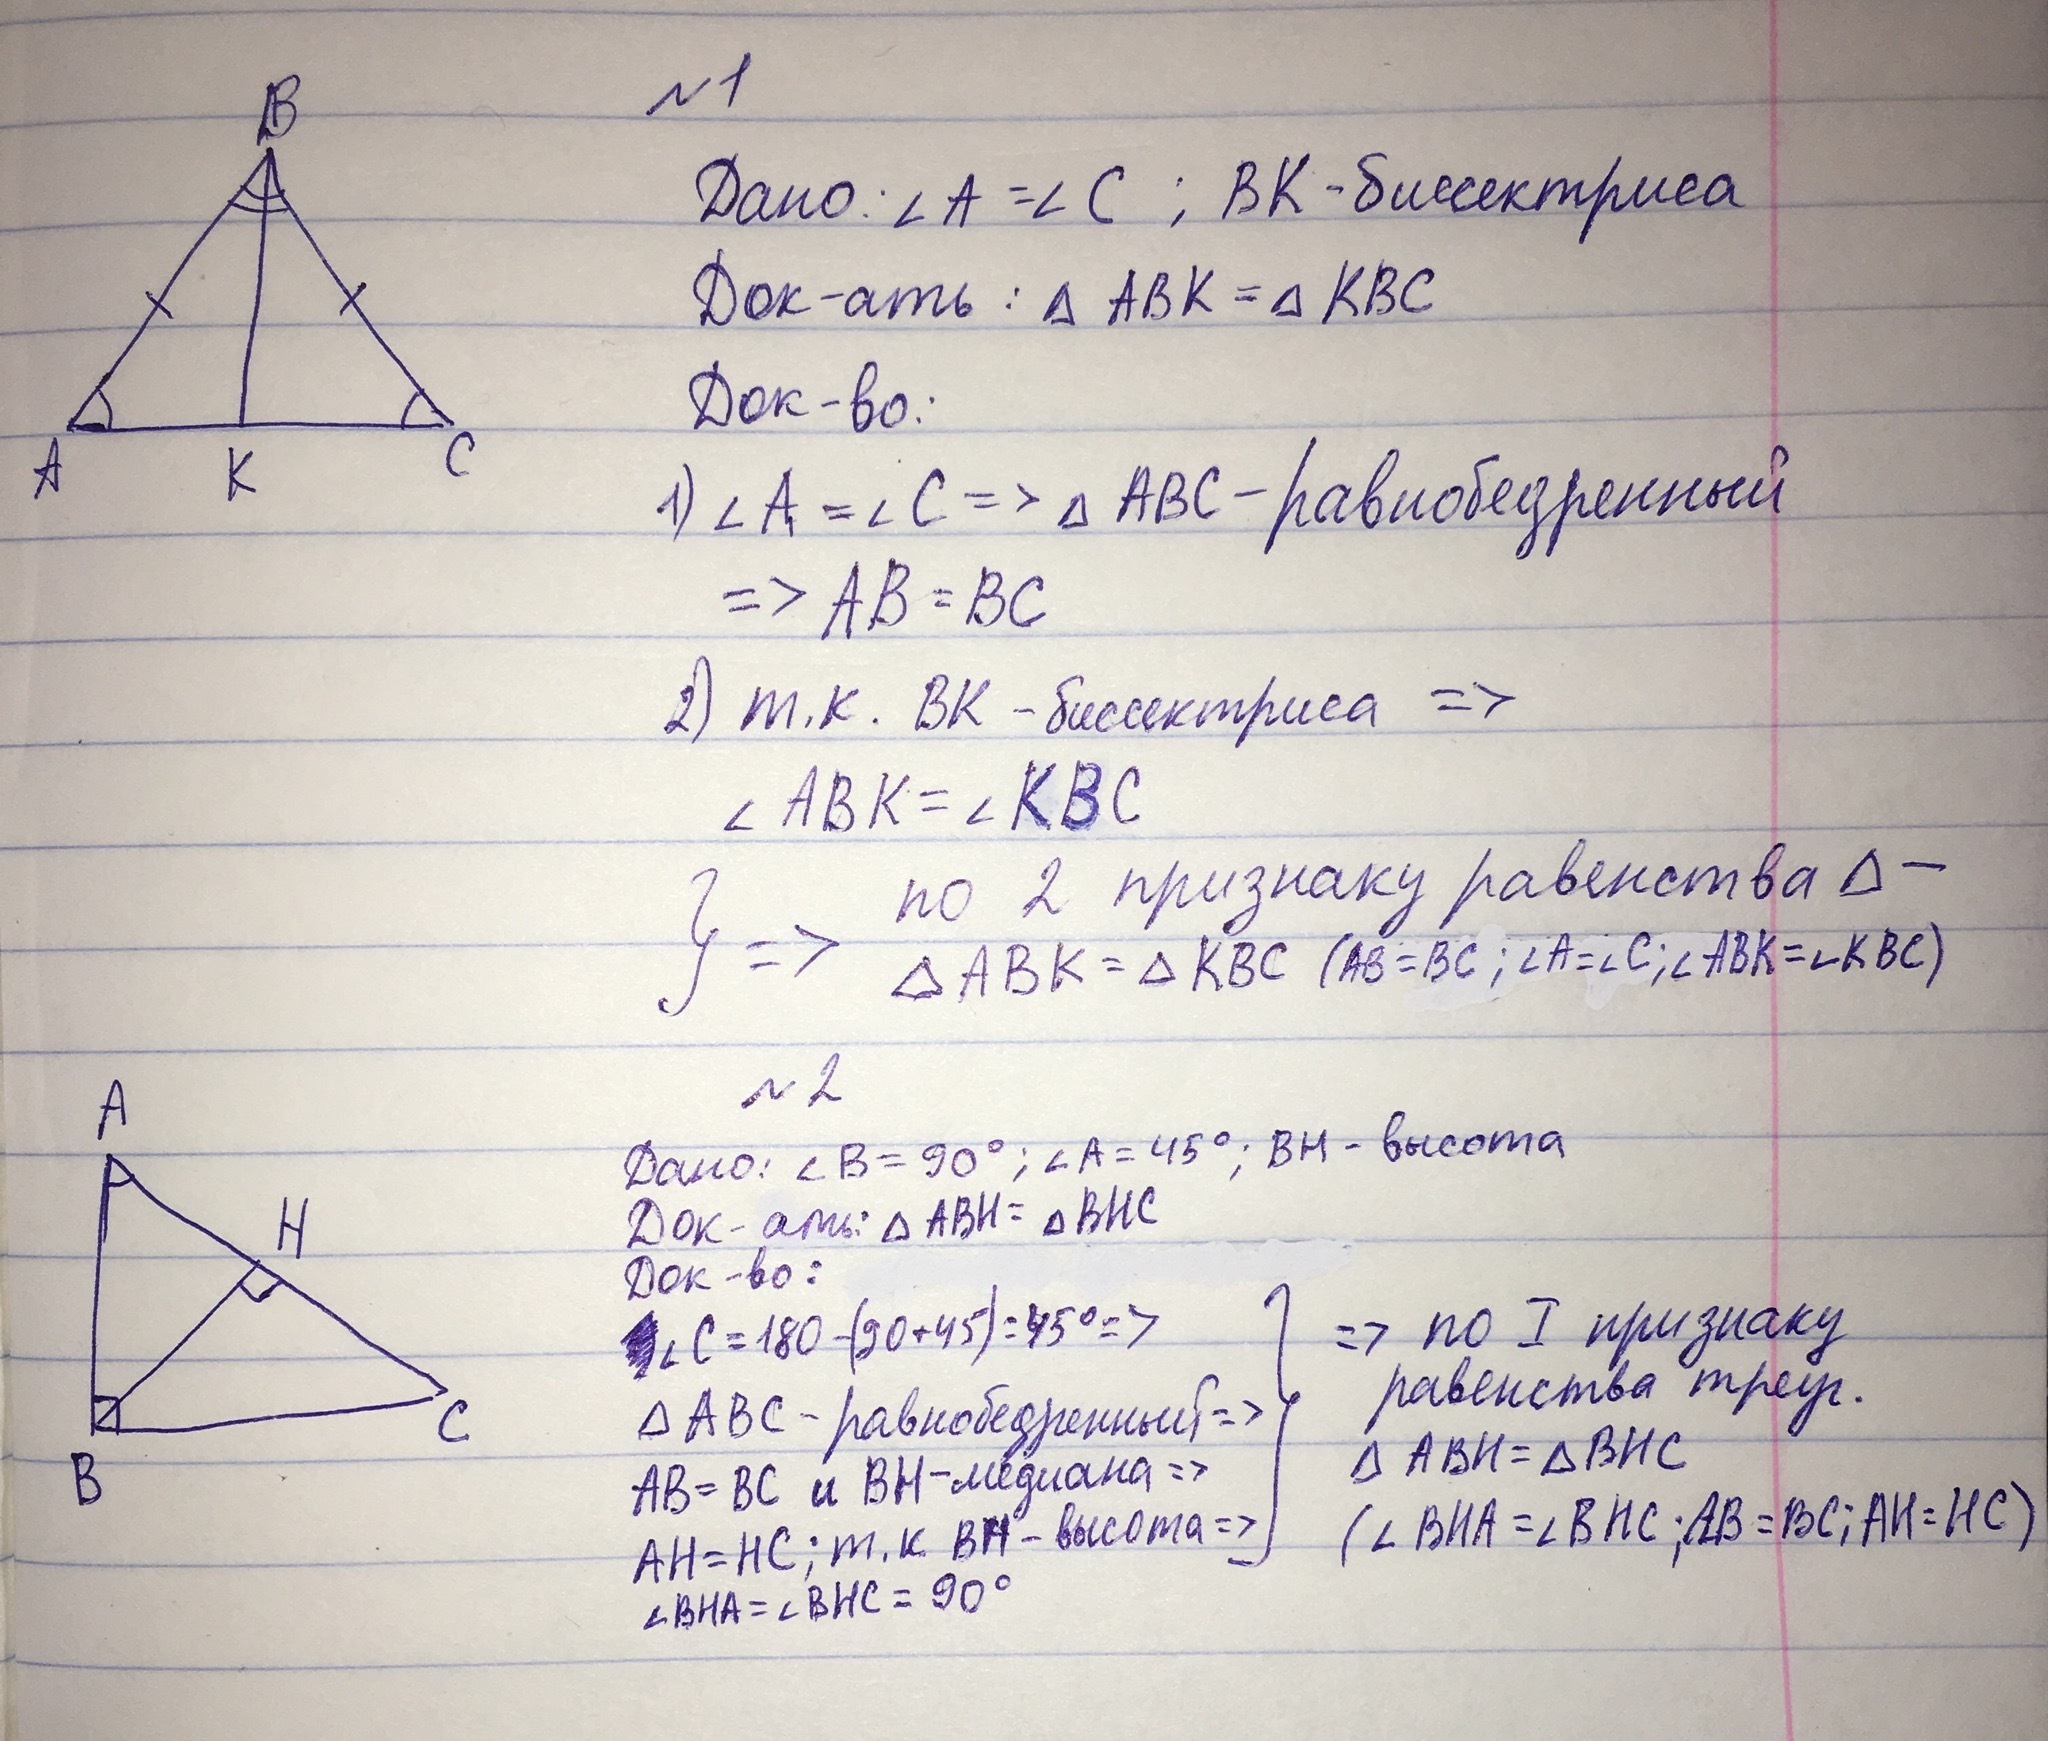 N1
B
A
K
C
Дано: ∠A = ∠C ; BK - биссектриса
Док-ать : △ ABK = △ KBC
Док-во:
1) ∠A = ∠C => △ ABC - равнобедренный
=> AB = BC
2) т.к. BK - биссектриса =>
∠ ABK = ∠ KBC
} => по 2 признаку равенства △ -
△ ABK = △ KBC (AB = BC ; ∠A = ∠C; ∠ABK = ∠KBC)
N2
A
H
B
C
Дано: ∠B = 90°; ∠A = 45°; BH - высота
Док-ать: △ ABH = △ BHC
Док-во:
∠C = 180 - (90+45) = 45° =>
△ ABC - равнобедренный =>
AB = BC и BH - медиана =>
AH = HC; т.к BH - высота =>
∠BHA = ∠BHC = 90°
} => по I признаку
равенства треуг.
△ ABH = △ BHC
(∠BHA = ∠BHC ; AB = BC; AH = HC)